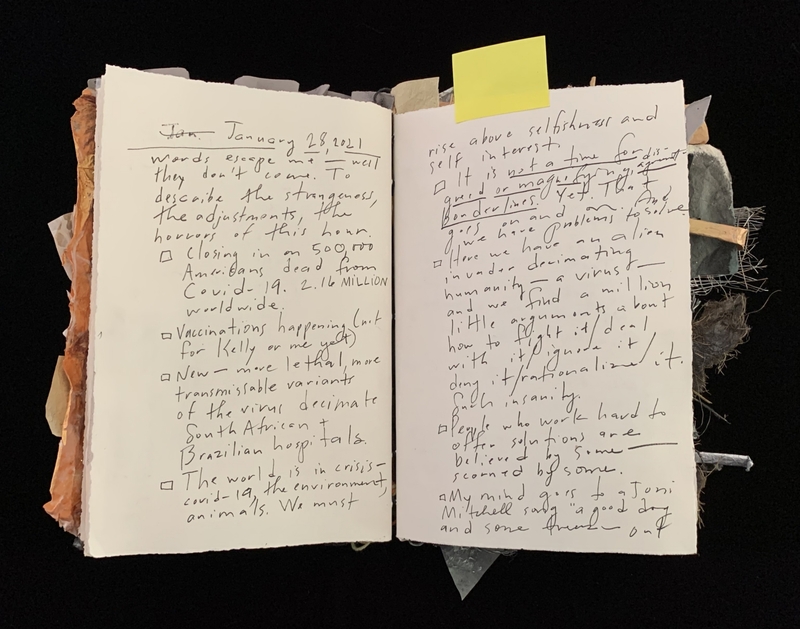 Jan. January 28, 2021
words escape me — well
they don't come. To
describe the strangeness,
the adjustments, the
horrors of this hour.
□ Closing in on 500,000
Americans dead from
Covid-19. 2.16 MILLION
worldwide.
□ Vaccinations happening (not
for Kelly or me yet)
□ New — more lethal, more
transmissable variants
of the virus decimate
South African +
Brazilian hospitals.
□ The world is in crisis —
covid-19, the environment,
animals. We must
rise above selfishness and
self interest.
□ It is not a time for dis-
greed or magnifying against
borderlines. Yet. That
goes on and on. And
we have problems to solve.
□ Here we have an alien
invader decimating
humanity — a virus —
and we find a million
little arguments about
how to fight it/deal
with it/ignore it/
deny it/rationalize it.
Such insanity.
□ People who work hard to
offer solutions are
believed by some —
scorned by some.
□ My mind goes to a Joni
Mitchell song "a good dog
and some out